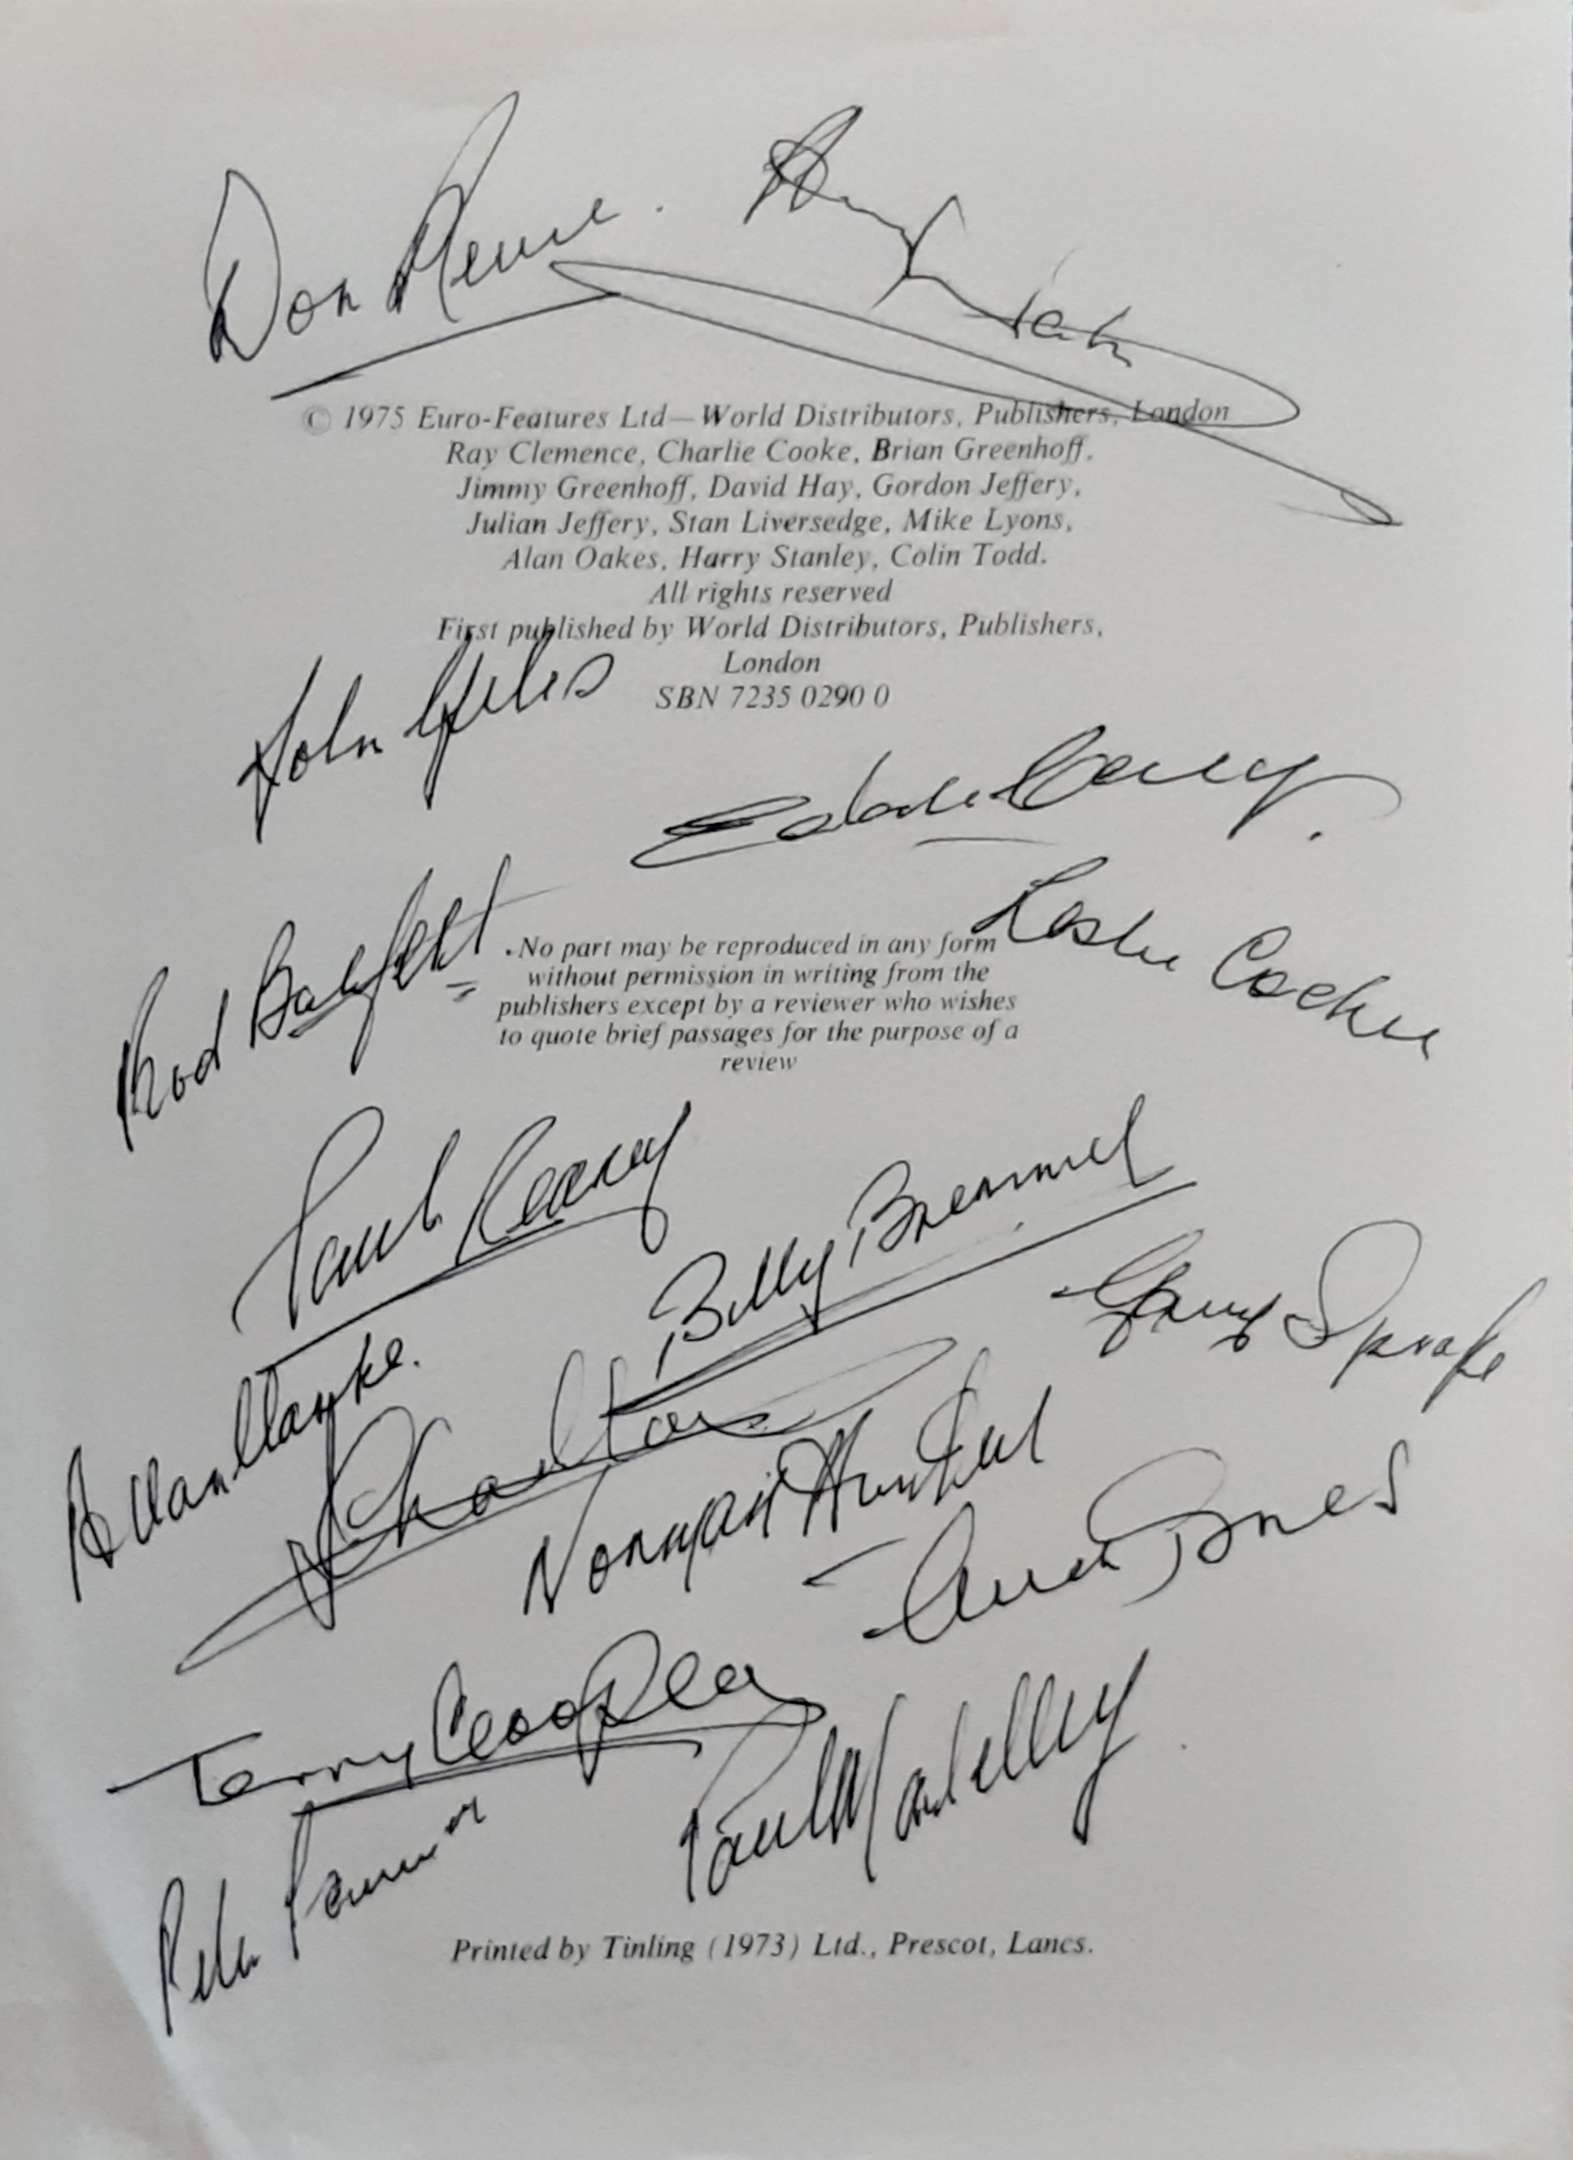 Don Revie.
© 1975 Euro-Features Ltd—World Distributors, Publishers, London
Ray Clemence, Charlie Cooke, Brian Greenhoff,
Jimmy Greenhoff, David Hay, Gordon Jeffery,
Julian Jeffery, Stan Liversedge, Mike Lyons,
Alan Oakes, Harry Stanley, Colin Todd.
All rights reserved
First published by World Distributors, Publishers,
London
SBN 7235 0290 0
John Giles
Eddie Gray.
Leslie Cocker
Rod Belfitt
No part may be reproduced in any form
without permission in writing from the
publishers except by a reviewer who wishes
to quote brief passages for the purpose of a
review
Paul Reaney
Billy Bremner
Gary Sprake
Allan Clarke.
J Charlton
Norman Hunter
Mick Jones
Terry Cooper
Paul Madeley
Peter Lorimer
Printed by Tinling (1973) Ltd., Prescot, Lancs.